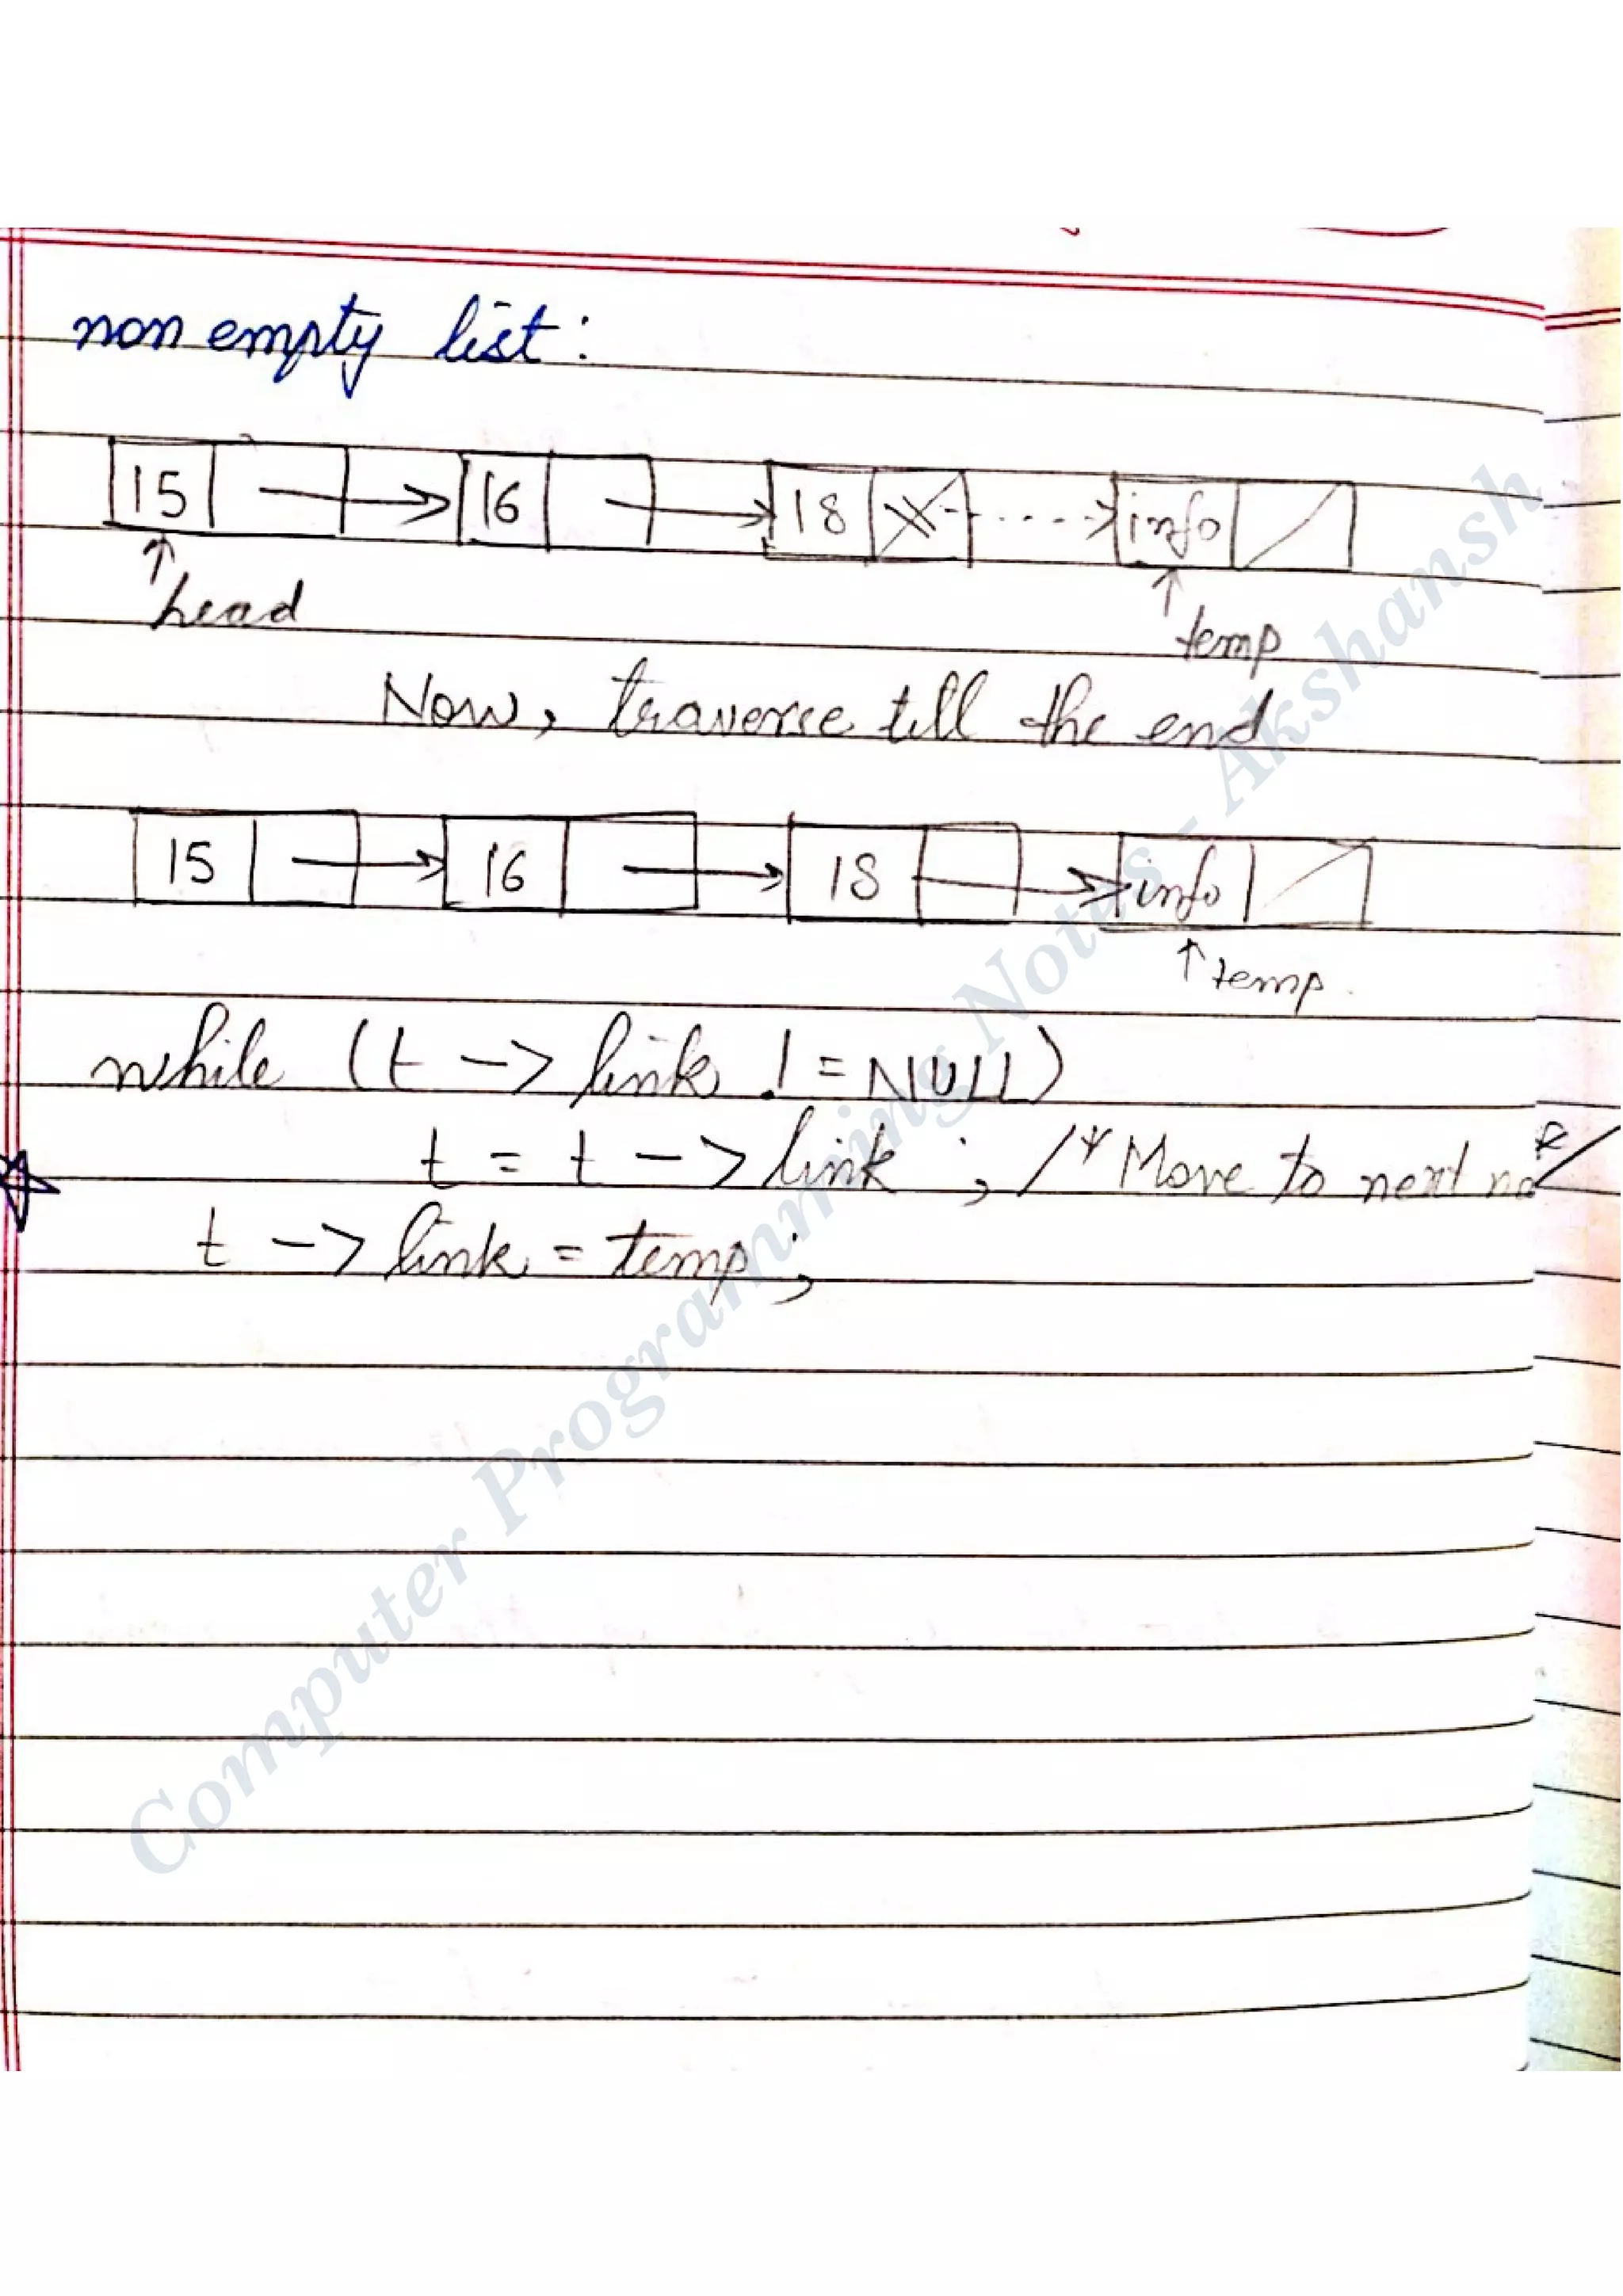 non empty list:
15 16 18 info
head
temp
Now, traverse till the end
15 16 18 info
temp
while (t -> link != NULL)
t = t -> link ; /* Move to next */
t -> link = temp;
Computer Programming Notes - Akshansh